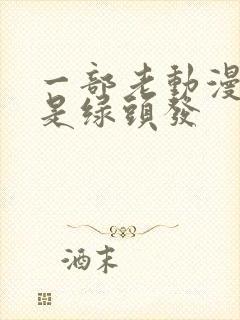 一部老動漫
是綠頭發
酒末